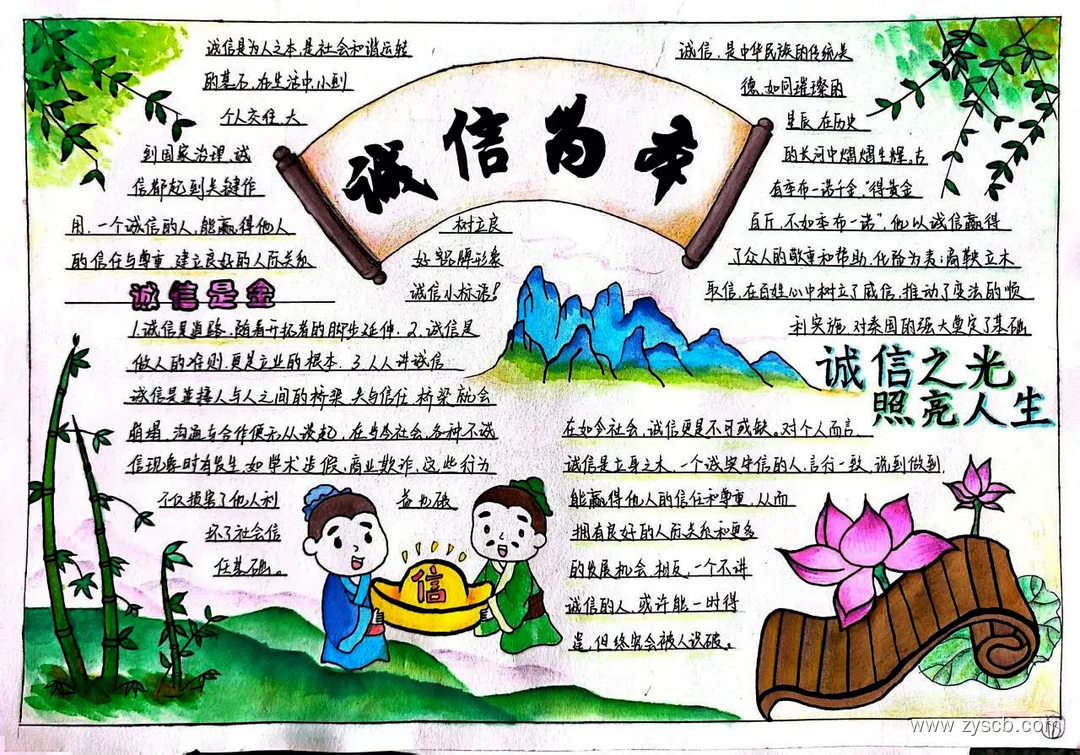 诚信为本
诚信是为人之本,是社会和谐运转
的基石,在生活中,小到
个人交往,大
到国家治理,诚
信都起到关键作
用,一个诚信的人,能赢得他人
的信任与尊重,建立良好的人际关系
树立良
好品牌形象
诚信小标语!
诚信是金
1.诚信是道路,随着开拓者的脚步延伸.2.诚信是
做人的准则,更是立业的根本.3.人人讲诚信
诚信是连接人与人之间的桥梁,失与信任,桥梁就会
崩塌,沟通与合作便无从谈起,在当今社会,各种不诚
信现象时有发生,如学术造假,商业欺诈,这些行为
不仅损害了他人利
益也破
坏了社会信
任基础。
诚信,是中华民族的传统美
德,如同璀璨的
星辰,在历史
的长河中熠熠生辉,古
有季布一诺千金,"得黄金
百斤,不如季布一诺",他以诚信赢得
了众人的敬重和帮助,化险为夷;商鞅立木
取信,在百姓心中树立了威信,推动了变法的顺
利实施,对秦国的强大奠定了基础
诚信之光
照亮人生
在如今社会,诚信更是不可或缺。对个人而言,
诚信是立身之本,一个诚实守信的人,言行一致,说到做到,
能赢得他人的信任和尊重,从而
拥有良好的人际关系和更多
的发展机会,相反,一个不讲
诚信的人,或许能一时得
逞,但终究会被人识破。
信
www.zyscb.com